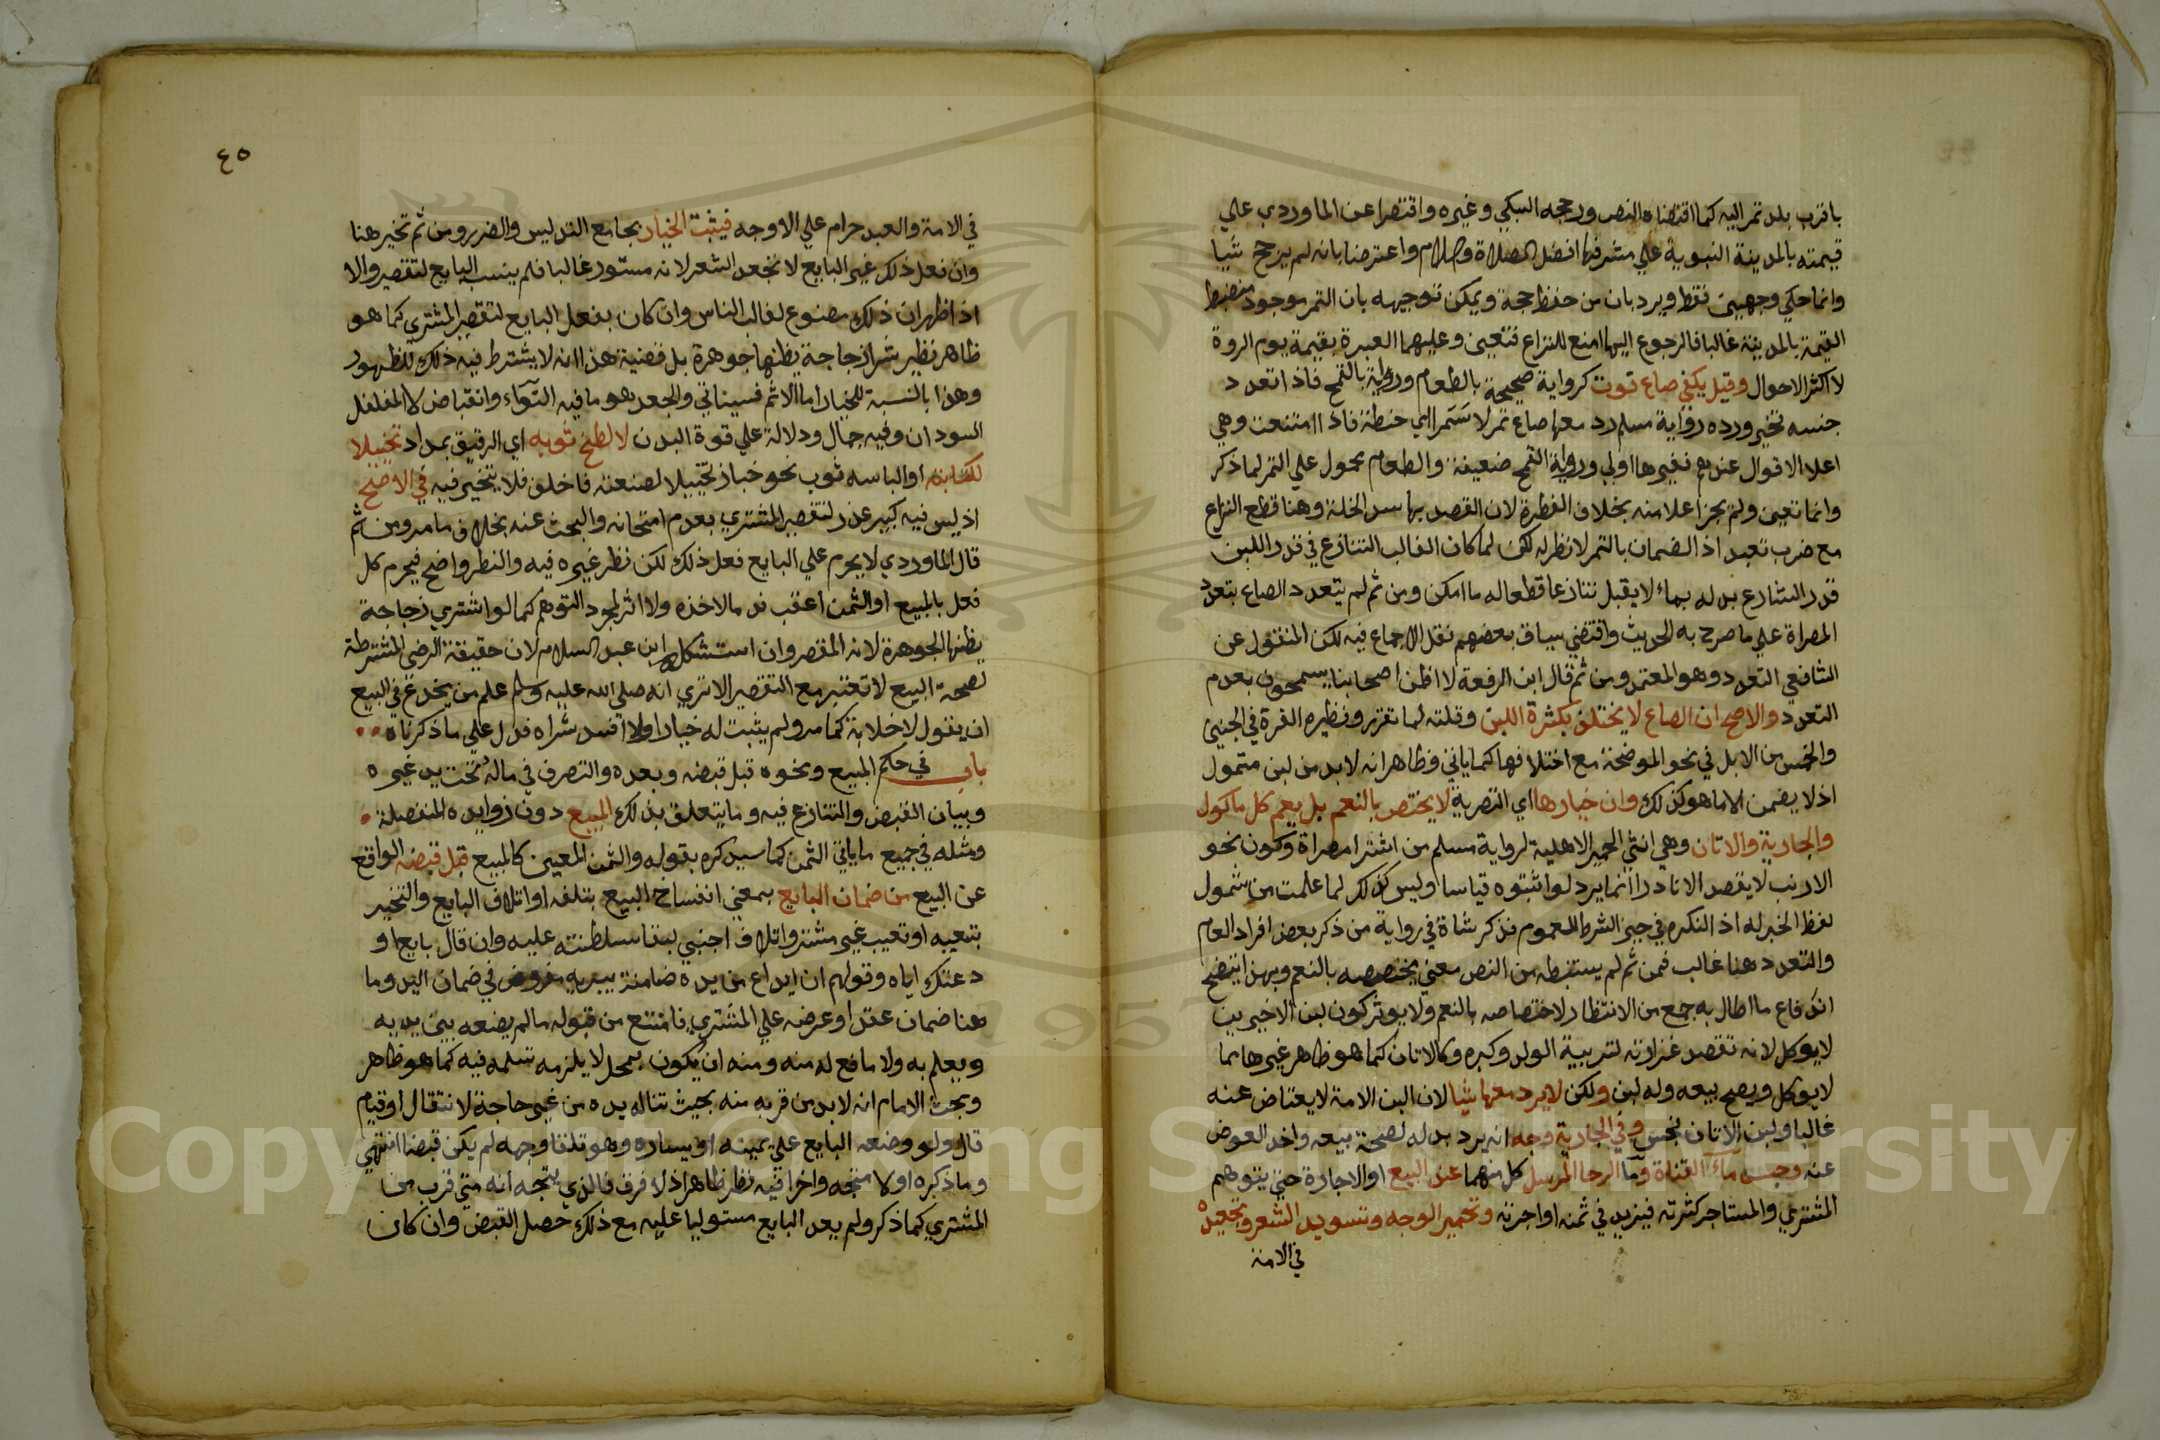 باقرب بلد تمر اليه كما اقتضاه النص ورجحه السبكي وغيره واقتصرا عن الماوردي علي
قيمته بالمدينة النبوية علي مشرفها افضل الصلاة والسلام واعترضا بانه لم يرجح شيا
وانما حكي وجهين فقط ويرد بان من حفظ حجة ويمكن توجيهه بان التمر موجود منضبط
القيمة بالمدينة غالبا فالرجوع اليها امنع للنزاع فتعين وعليهما العبرة بقيمة يوم الرد
لا اكثر الاحوال وقيل يكفي صاع قوت كرواية صحيحة بالطعام ورواية بالقمح فاذا تعدد
جنسه تخير ورده رواية مسلم رد معها صاع تمر لا سمرا اي حنطة فاذا امتنعت وهي
اعلا الاقوال عندهم فغيرها اولي ورواية القمح ضعيفة والطعام محمول علي التمر لما ذكر
وانما تعين ولم يجز اعلا منه بخلاف الفطرة لان القصد بها سد الخلة وهنا قطع النزاع
مع ضرب تعبد اذ الضمان بالتمر لا نظر له لكن لما كان الغالب التنازع في قدر اللبن
قدر الشارع بدله بما لا يقبل تنازعا قطعا له ما امكن ومن ثم لم يتعدد الصاع بتعدد
المصراة علي ما صرح به الحديث واقتضي سياق بعضهم نقل الاجماع فيه لكن المنقول عن
الشافعي التعدد وهو المعتمد ومن ثم قال ابن الرفعة لا اظن اصحابنا يسمحون بعدم
التعدد والاصح ان الصاع لا يختلف بكثرة اللبن وقلته لما تقرر ونظيره الغرة في الجنين
والخمس من الابل في نحو الموضحة مع اختلافها كما ياتي وظاهر انه لا بد من لبن متمول
اذ لا يضمن الا ما هو كذلك وان خيارها اي التصرية لا يختص بالنعم بل يعم كل ماكول
والجارية والاتان وهي انثي الحمير الاهلية لرواية مسلم من اشترا مصراة وكون نحو
الارنب لا يقصد الا نادرا انما يرد لو اثبتوه قياسا وليس كذلك لما علمت من شمول
لفظ الخبر له اذ النكره في حيز الشرط للعموم فذكر شاة في رواية من ذكر بعض افراد العام
والتعدد هنا غالب فمن ثم لم يستنبط من النص معني يخصصه بالنعم وبهذا يتضح
اندفاع ما اطال به جمع من الانتظار لاختصاصه بالنعم ولا يوثر كون لبن الاخيرين
لا يوكل لانه تقصد غزارته لتربية الولد وكبره وكالاتان كما هو ظاهر غيرها مما
لا يوكل ويصح بيعه وله لبن ولكن لا يرد معها شيا لان لبن الامة لا يعتاض عنه
غالبا ولبن الاتان نجس وفي الجارية وجه انه يرد بدله لصحة بيعه واخذ العوض
عنه وحبس ماء القناة وماء الرحا المرسل كل منهما عند البيع او الاجارة حتي يتوهم
المشتري والمستاجر كثرته فيزيد في ثمنه او اجرته وتحمير الوجه وتسويد الشعر وتجعيده
في الامة
٤٥
في الامة والعبد حرام علي الاوجه فيثبت الخيار بجامع التدليس والضرر ومن ثم تخير هنا
وان فعل ذلك غير البايع لا بجعد الشعر لانه مستور غالبا فلم ينسب البايع لتقصير والا
اذا ظهر ان ذلك مصنوع لغالب الناس وان كان بفعل البايع لتقصير المشتري كما هو
ظاهر نظير شرا زجاجة يظنها جوهرة بل قضية هذا انه لا يشترط فيه ذلك للظهور
وهذا بالنسبة للخيار اما الاثم فسيناتي والجعد هو ما فيه التواء وانقباض لا المفلفل
السودان وفيه جمال ودلالة علي قوة البدن لا لطخ ثوبه اي الرقيق بمداد تخييلا
لكتابة او الباسه ثوب نحو خباز تخييلا لصنعته فاخلف فلا يتخير فيه في الاصح
اذ ليس فيه كبير غرر لتقصير المشتري بعدم امتحانه والبحث عنه بخلاف ما مر ومن ثم
قال الماوردي لا يحرم علي البايع فعل ذلك لكن نظر غيره فيه والنظر واضح فيحرم كل
فعل بالمبيع او الثمن اعقب ندما لاخذه ولا اثر لمجرد التوهم كما لو اشتري زجاجة
يظنها جوهرة لانه المقصر وان استشكله ابن عبد السلام لان حقيقة الرضي المشترطة
لصحة البيع لا تعتبر مع التقصير الا تري انه صلي الله عليه وسلم علم من يخدع في البيع
ان يقول لا خلابة كما مر ولم يثبت له خيارا ولا افسد شراه فدل علي ما ذكرناه
باب في حكم المبيع ونحوه قبل قبضه وبعده والتصرف في ماله تحت يد غيره
وبيان القبض والتنازع فيه وما يتعلق بذلك المبيع دون زوايده المنفصلة
ومثله في جميع ما ياتي الثمن كما سيذكره بقوله والثمن المعين كالمبيع قبل قبضه الواقع
عن البيع من ضمان البايع بمعني انفساخ البيع بتلفه او اتلاف البايع والتخير
بتعيبه او تعييب غير مشتر واتلاف اجنبي لبقا سلطنته عليه وان قال بايع او
دعتك اياه وقولهم ان ايداع من يده ضامنة يبريه مفروض في ضمان اليد وما
هنا ضمان عقد او عرضه علي المشتري فامتنع من قبوله ما لم يضعه بين يديه
ويعلم به ولا مانع له منه ومنه ان يكون بمحل لا يلزمه تسلمه فيه كما هو ظاهر
وبحث الامام انه لا بد من قربه منه بحيث تناله يده من غير حاجة لانتقال او قيام
قال ولو وضعه البايع علي يمينه او يساره وهو تلقا وجهه لم يكن قبضا انتهي
وما ذكره اولا متجه واخرا فيه نظر ظاهر اذ لا فرق فالذي يتجه انه متي قرب من
المشتري كما ذكر ولم يعد البايع مستوليا عليه مع ذلك حصل القبض وان كان
Copyright © King Saud University
1957